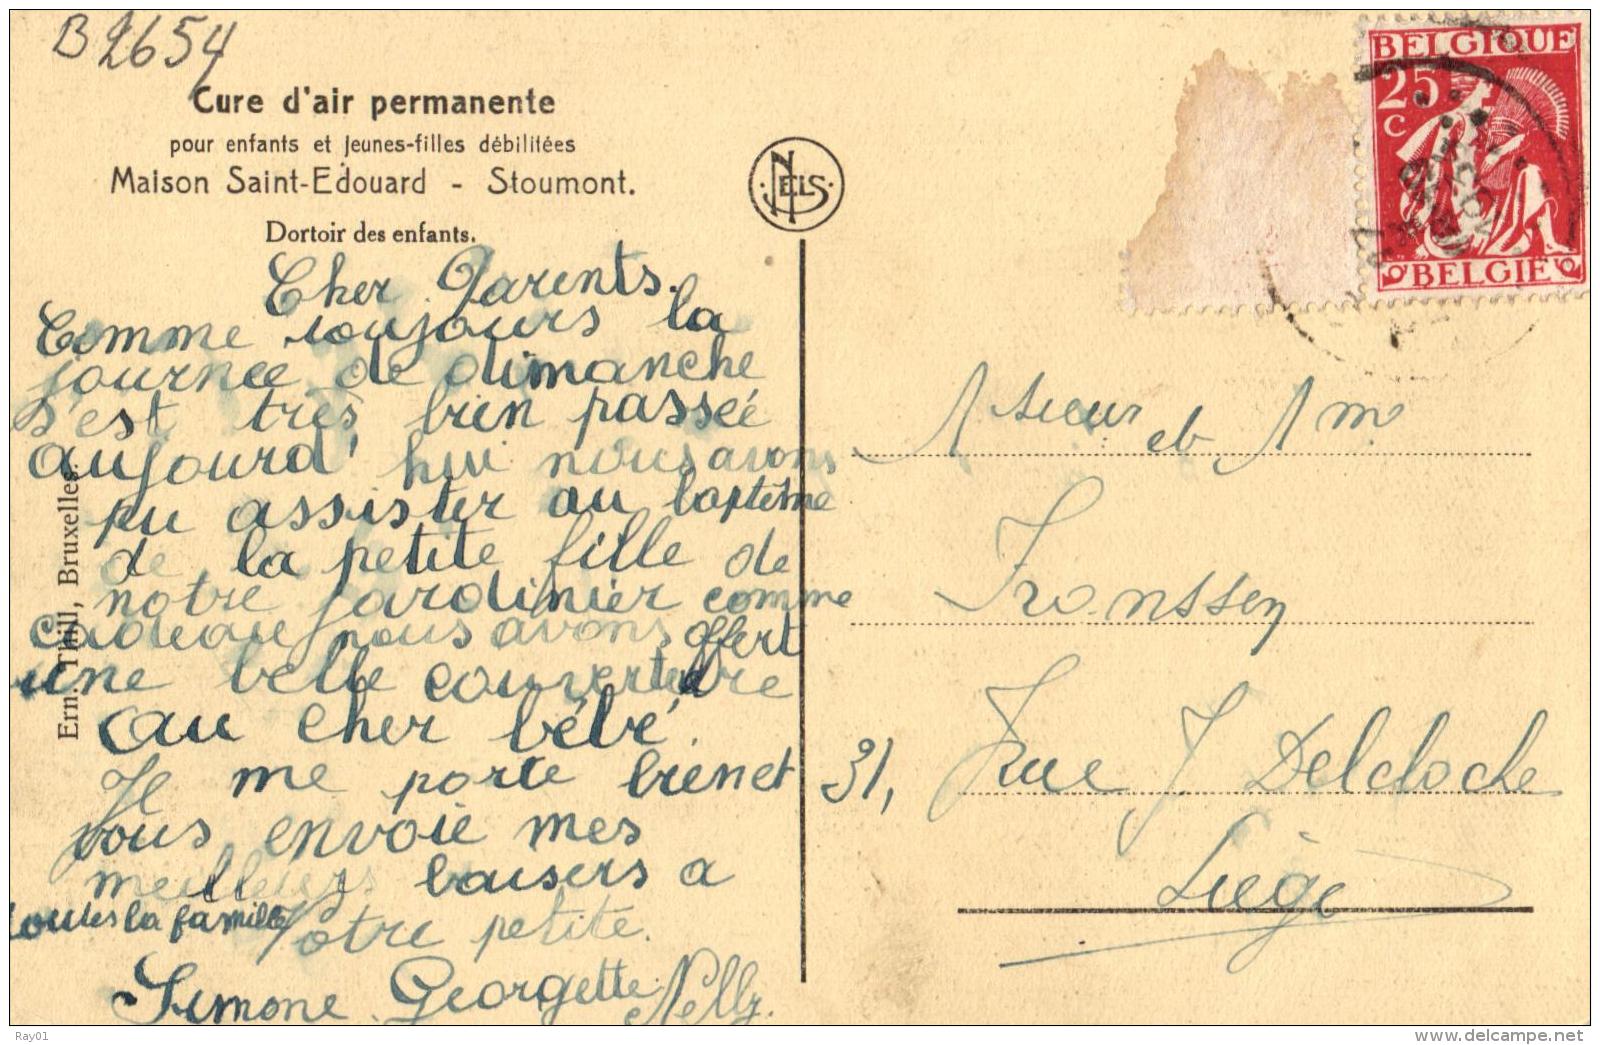 B2654
Cure d'air permanente
pour enfants et jeunes-filles débilitées
Maison Saint-Edouard - Stoumont.
Dortoir des enfants.
Cher Parents.
Comme toujours la
journée de dimanche
s'est très bien passeé
aujourd'hui nous avons
pu assister au baptême
de la petite fille de
notre jardinier comme
cadeau nous avons offert
une belle couverture
au cher bébé.
Je me porte bien et
vous envoie mes
meilleurs baisers a
toutes la famille
Votre petite.
Simone Georgette Nelly.
Ern. Thill, Bruxelles.
NELS
BELGIQUE
25
C
BELGIË
Msieur et Mm
Franssen
31, Rue J Delcloche
Liège
Ray01
delcampe.net